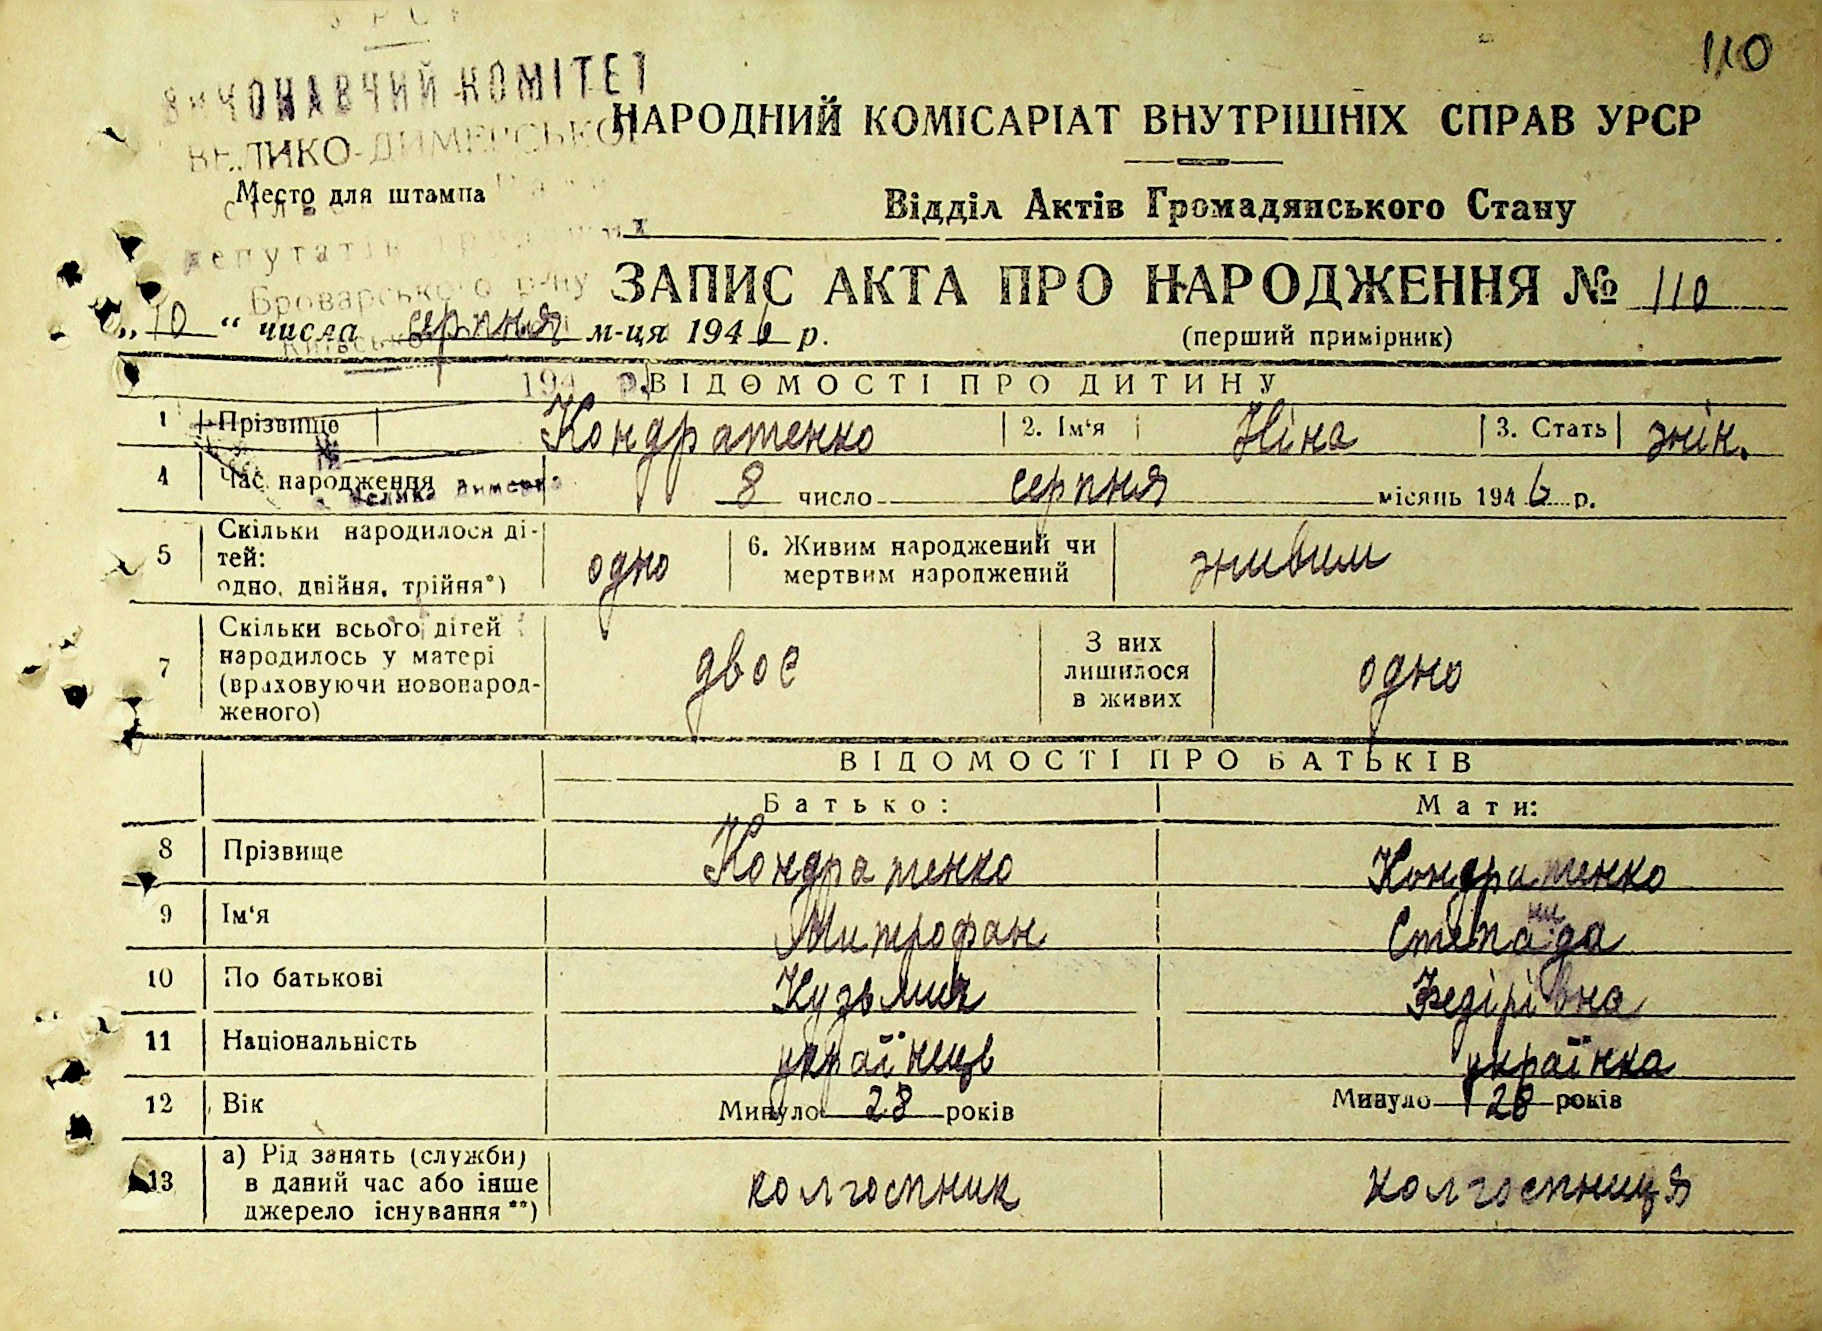 УРСР
110
ВИКОНАВЧИЙ КОМІТЕТ
НАРОДНИЙ КОМІСАРІАТ ВНУТРІШНІХ СПРАВ УРСР
ВЕЛИКО-ДИМЕРСЬКОЇ
Место для штампа
Відділ Актів Громадянського Стану
депутатів
Броварського р-ну
ЗАПИС АКТА ПРО НАРОДЖЕННЯ № 110
„10“ числа серпня м-ця 1946 р.
(перший примірник)
Київської
194 р.
ВІДОМОСТІ ПРО ДИТИНУ
1 Прізвище Кондратенко 2. Ім‘я Ніна 3. Стать жін.
№
4 Час народження 8 число серпня місяць 1946 р.
с. Велика Димерка
5 Скільки народилося ді-
тей:
одно, двійня, трійня*) одно
6. Живим народжений чи
мертвим народжений живим
7 Скільки всього дітей
народилось у матері
(враховуючи новонарод-
женого) двоє
З них
лишилося
в живих одно
ВІДОМОСТІ ПРО БАТЬКІВ
Батько: Мати:
8 Прізвище Кондратенко Кондратенко
9 Ім‘я Митрофан Степанида
10 По батькові Кузьмич Федірівна
11 Національність українець українка
12 Вік Минуло 28 років Минуло 28 років
13 а) Рід занять (служби)
в даний час або інше
джерело існування**) колгоспник колгоспниця